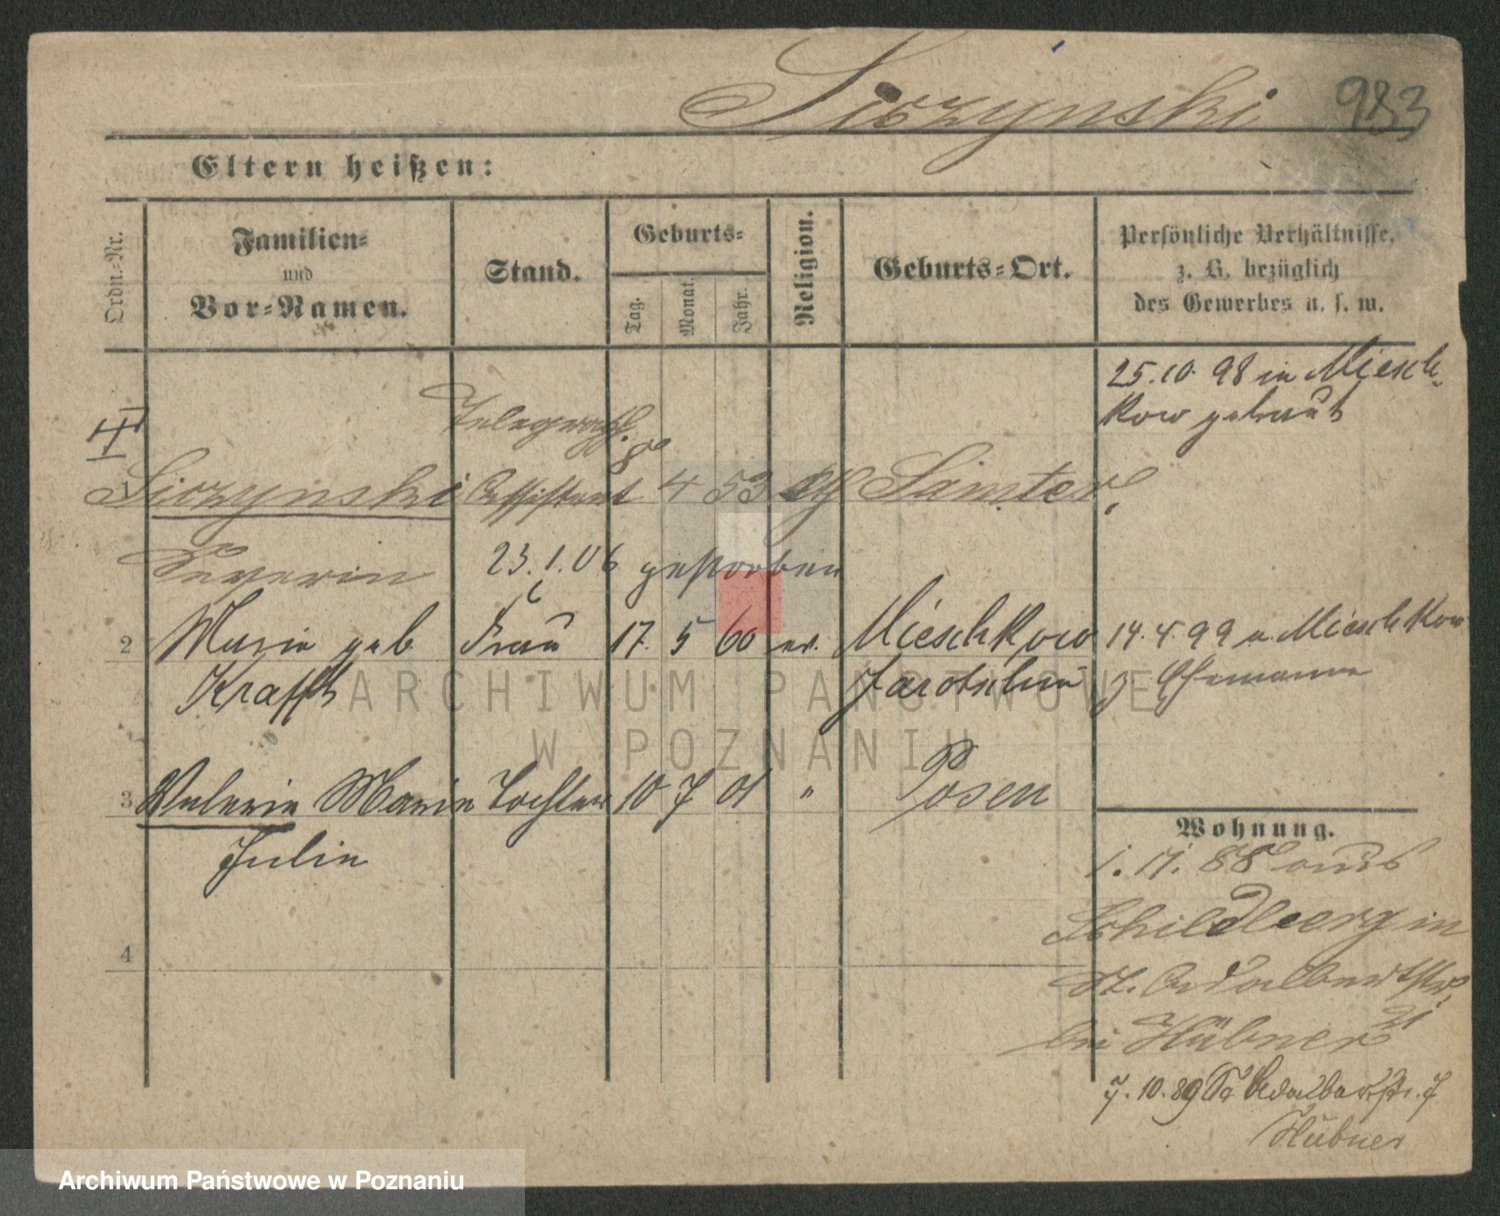 Siczynski 983
Eltern heißen:
Ordn.-Nr.
Familien-
und
Vor-Namen.
Stand.
Geburts-
Tag.
Monat.
Jahr.
Religion.
Geburts-Ort.
Persönliche Verhältnisse,
z. B. bezüglich
des Gewerbes u. s. w.
25.10.98 in Miesch-
kow getraut
Telegraph.
1 Siczynski Assistent 8 4 53 kth Samter
Severin
23.1.06 gestorben
2 Marie geb Frau 17. 5 60 ev. Mieschkow 14.4.99 a. Mieschkow
Krafft Jarotschin z Ehemann
3 Valerie Marie Tochter 10 7 01 " Posen
Julie
4
Wohnung.
1.11.88 aus
Schildberg in
St. Adalbertstr.
21
bei Hübner
7.10.89 St Adalbertstr. 7
Hübner
ARCHIWUM PAŃSTWOWE
W POZNANIU
Archiwum Państwowe w Poznaniu